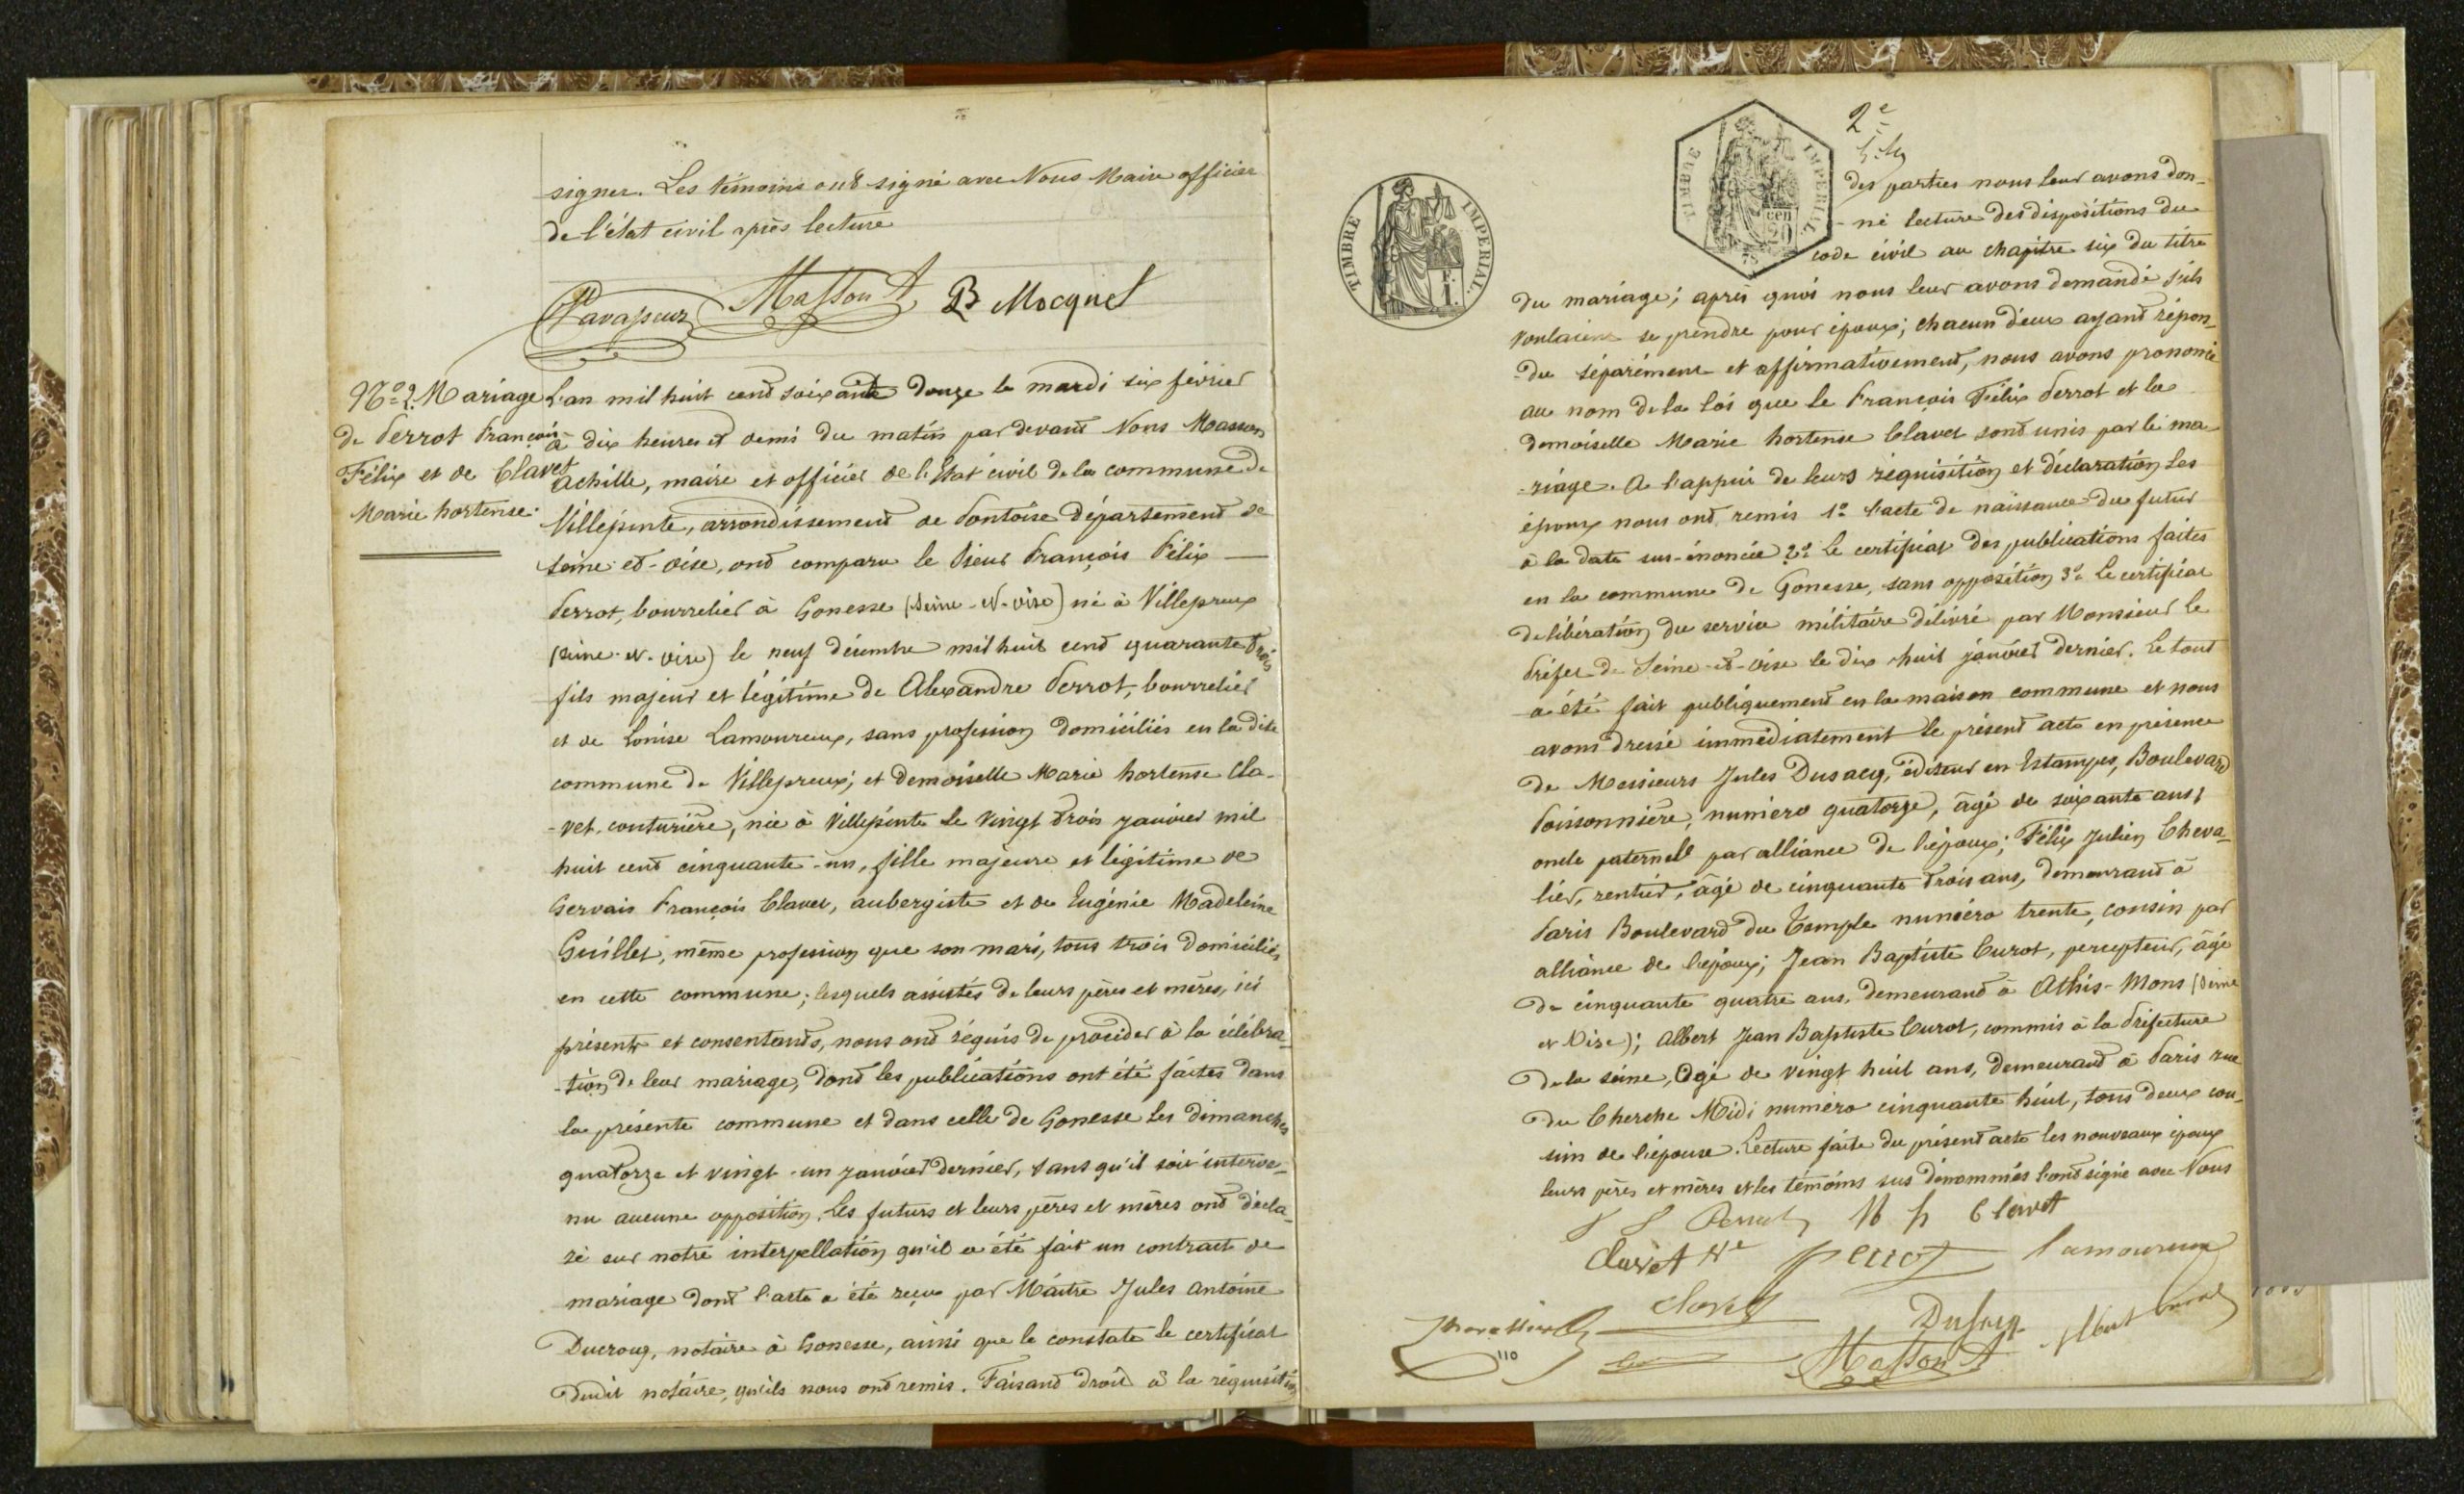 signer. Les témoins ont signé avec Nous Maire officier
de l'état civil après lecture
Masson A B Mocquet
N° 2. Mariage
de Perrot François
Félix et de Clavet
Marie hortense.
L'an mil huit cent soixante douze le mardi six février
à dix heures et demi du matin par devant Nous Masson
Achille, maire et officier de l'état civil de la commune de
Villepinte, arrondissement de Pontoise département de
Seine-et-oise, ont comparu le sieur François Félix
Perrot, bourrelier à Gonesse (Seine-et-oise) né à Villepreux
(Seine-et-oise) le neuf décembre mil huit cent quarante trois
fils majeur et légitime de Alexandre Perrot, bourrelier
et de Louise Lamoureux, sans profession domiciliés en la dite
commune de Villepreux; et demoiselle Marie hortense Cla-
-vet, couturière, née à Villepinte le vingt trois janvier mil
huit cent cinquante-un, fille majeure et légitime de
Gervais François Clavet, aubergiste et de Eugénie Madeleine
Guillet, même profession que son mari, tous trois domiciliés
en cette commune; lesquels assistés de leurs pères et mères, ici
présents et consentants, nous ont réquis de procéder à la célébra-
-tion de leur mariage, dont les publications ont été faites dans
la présente commune et dans celle de Gonesse les dimanches
quatorze et vingt-un janvier dernier, sans qu'il soit interve-
nu aucune opposition. Les futurs et leurs pères et mères ont décla-
ré sur notre interpellation qu'il a été fait un contract de
mariage dont l'acte a été reçu par Maître Jules Antoine
Ducroux, notaire à Gonesse, ainsi que le constate le certificat
dudit notaire, qu'ils nous ont remis. Faisant droit à la réquisition
TIMBRE IMPERIAL
TIMBRE IMPERIAL
cen
20
2e
des parties nous leur avons don-
-né lecture des dispositions du
code civil au chapitre six du titre
du mariage; après quoi nous leur avons demandé s'ils
voulaient se prendre pour époux; chacun d'eux ayant répon-
-du séparément et affirmativement, nous avons prononcé
au nom de la loi que le François Félix Perrot et la
demoiselle Marie hortense Clavet sont unis par le ma-
-riage. A l'appui de leurs réquisition et déclaration les
époux nous ont remis 1° l'acte de naissance du futur
à la date sus-énoncée 2° le certificat des publications faites
en la commune de Gonesse, sans opposition 3° Le certificat
de libération du service militaire délivré par Monsieur le
Préfet de Seine-et-Oise le dix huit janvier dernier. Le tout
a été fait publiquement en la maison commune et nous
avons dressé immédiatement le présent acte en présence
de Messieurs Jules Dusacq, éditeur en Estampes, Boulevard
Poissonnière, numéro quatorze, âgé de soixante ans,
oncle paternel par alliance de l'époux; Félix Julien Cheva-
lier, rentier, âgé de cinquante trois ans, demeurant à
Paris Boulevard du Temple numéro trente, cousin par
alliance de l'époux; Jean Baptiste Curot, percepteur, âgé
de cinquante quatre ans, demeurant à Athis-Mons (Seine
et Oise); Albert Jean Baptiste Curot, commis à la Préfecture
de la Seine, âgé de vingt huit ans, demeurant à Paris rue
du Cherche Midi numéro cinquante huit, tous deux cou-
sins de l'épouse. Lecture faite du présent acte les nouveaux époux
leurs pères et mères et les témoins sus dénommés l'ont signé avec Nous
Perrot M h Clavet
Clavet Perrot Lamoureux
Clavet Dusacq Albert
Masson A
110